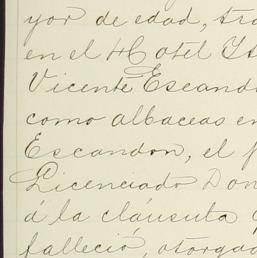 yor de edad, tra
en el Hotel It
Vicente Escand
como albaceas en
Escandon, el f
Licenciado Don
á la cláusula
falleció, otorgad